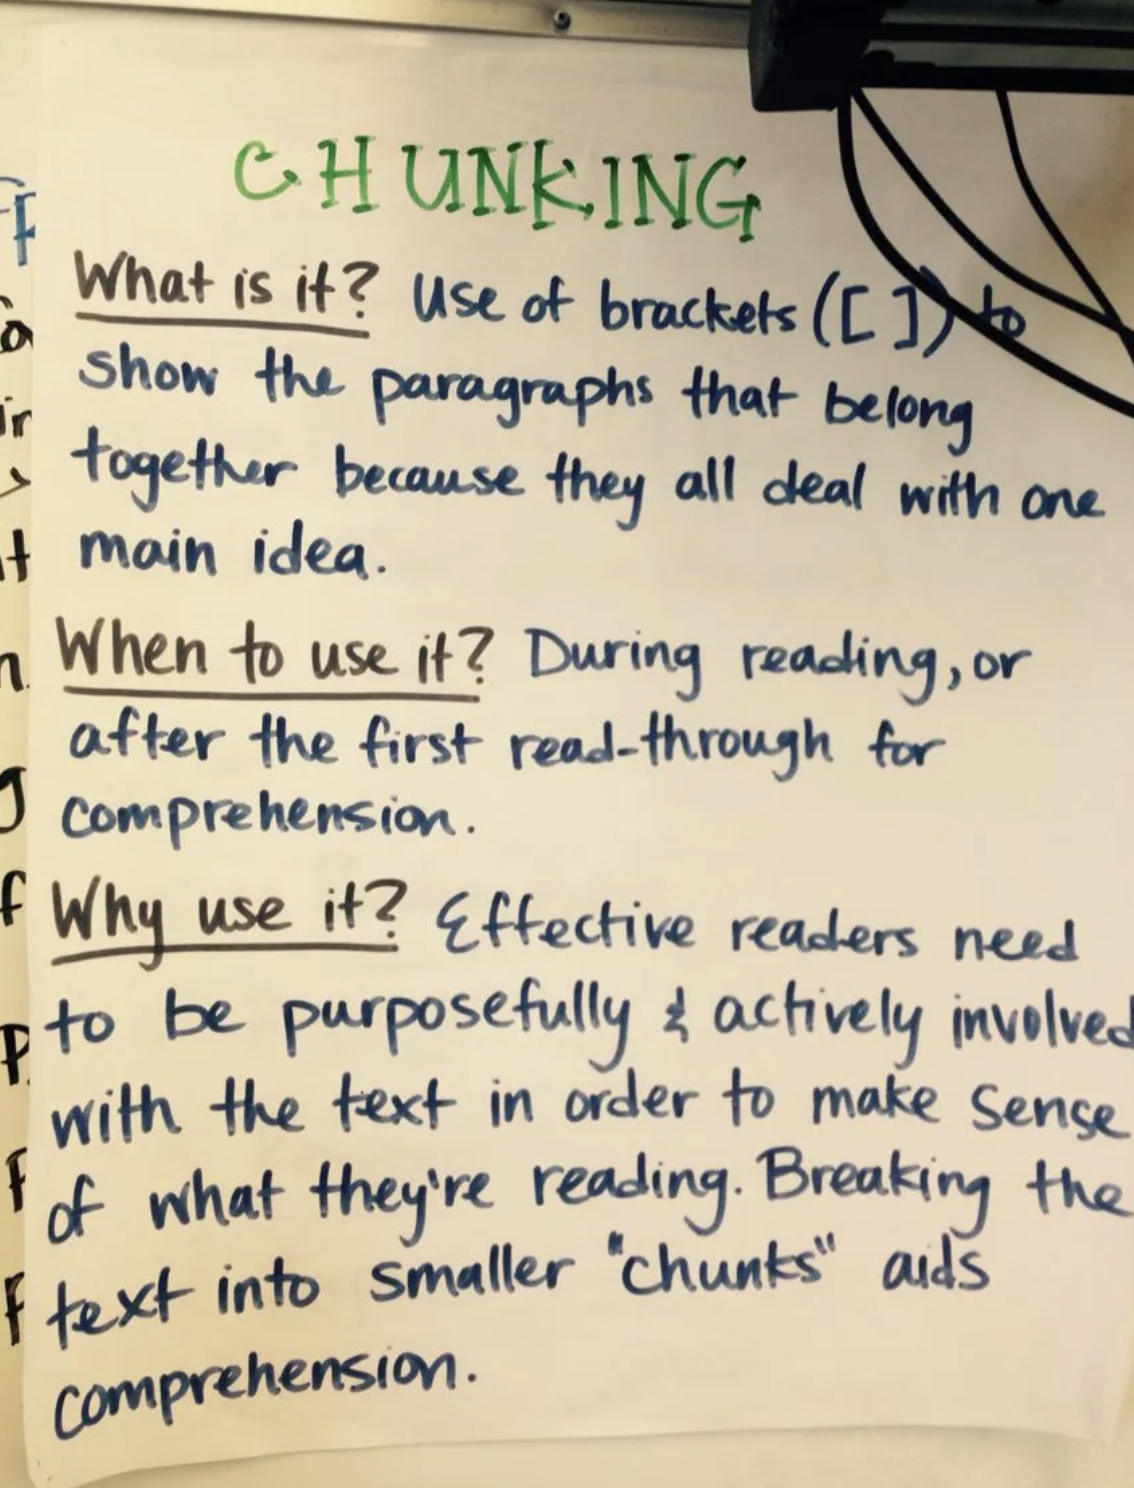 CHUNKING
What is it? Use of brackets ([ ]) to
show the paragraphs that belong
together because they all deal with one
main idea.
When to use it? During reading, or
after the first read-through for
comprehension.
Why use it? Effective readers need
to be purposefully & actively involved
with the text in order to make sense
of what they're reading. Breaking the
text into smaller "chunks" aids
comprehension.